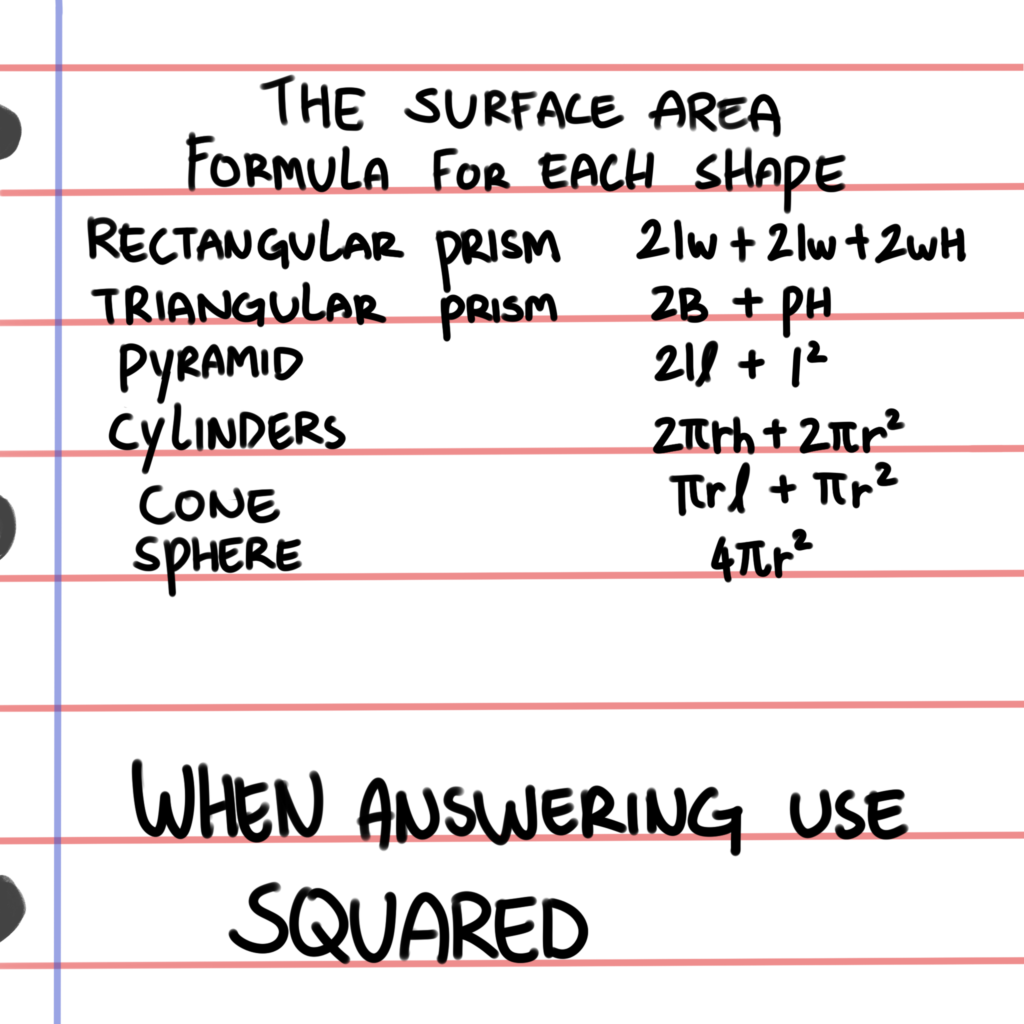 THE SURFACE AREA
FORMULA FOR EACH SHAPE
RECTANGULAR PRISM 2lw + 2lw + 2wH
TRIANGULAR PRISM 2B + PH
PYRAMID 2lℓ + l²
CYLINDERS 2πrh + 2πr²
CONE πrℓ + πr²
SPHERE 4πr²
WHEN ANSWERING USE
SQUARED